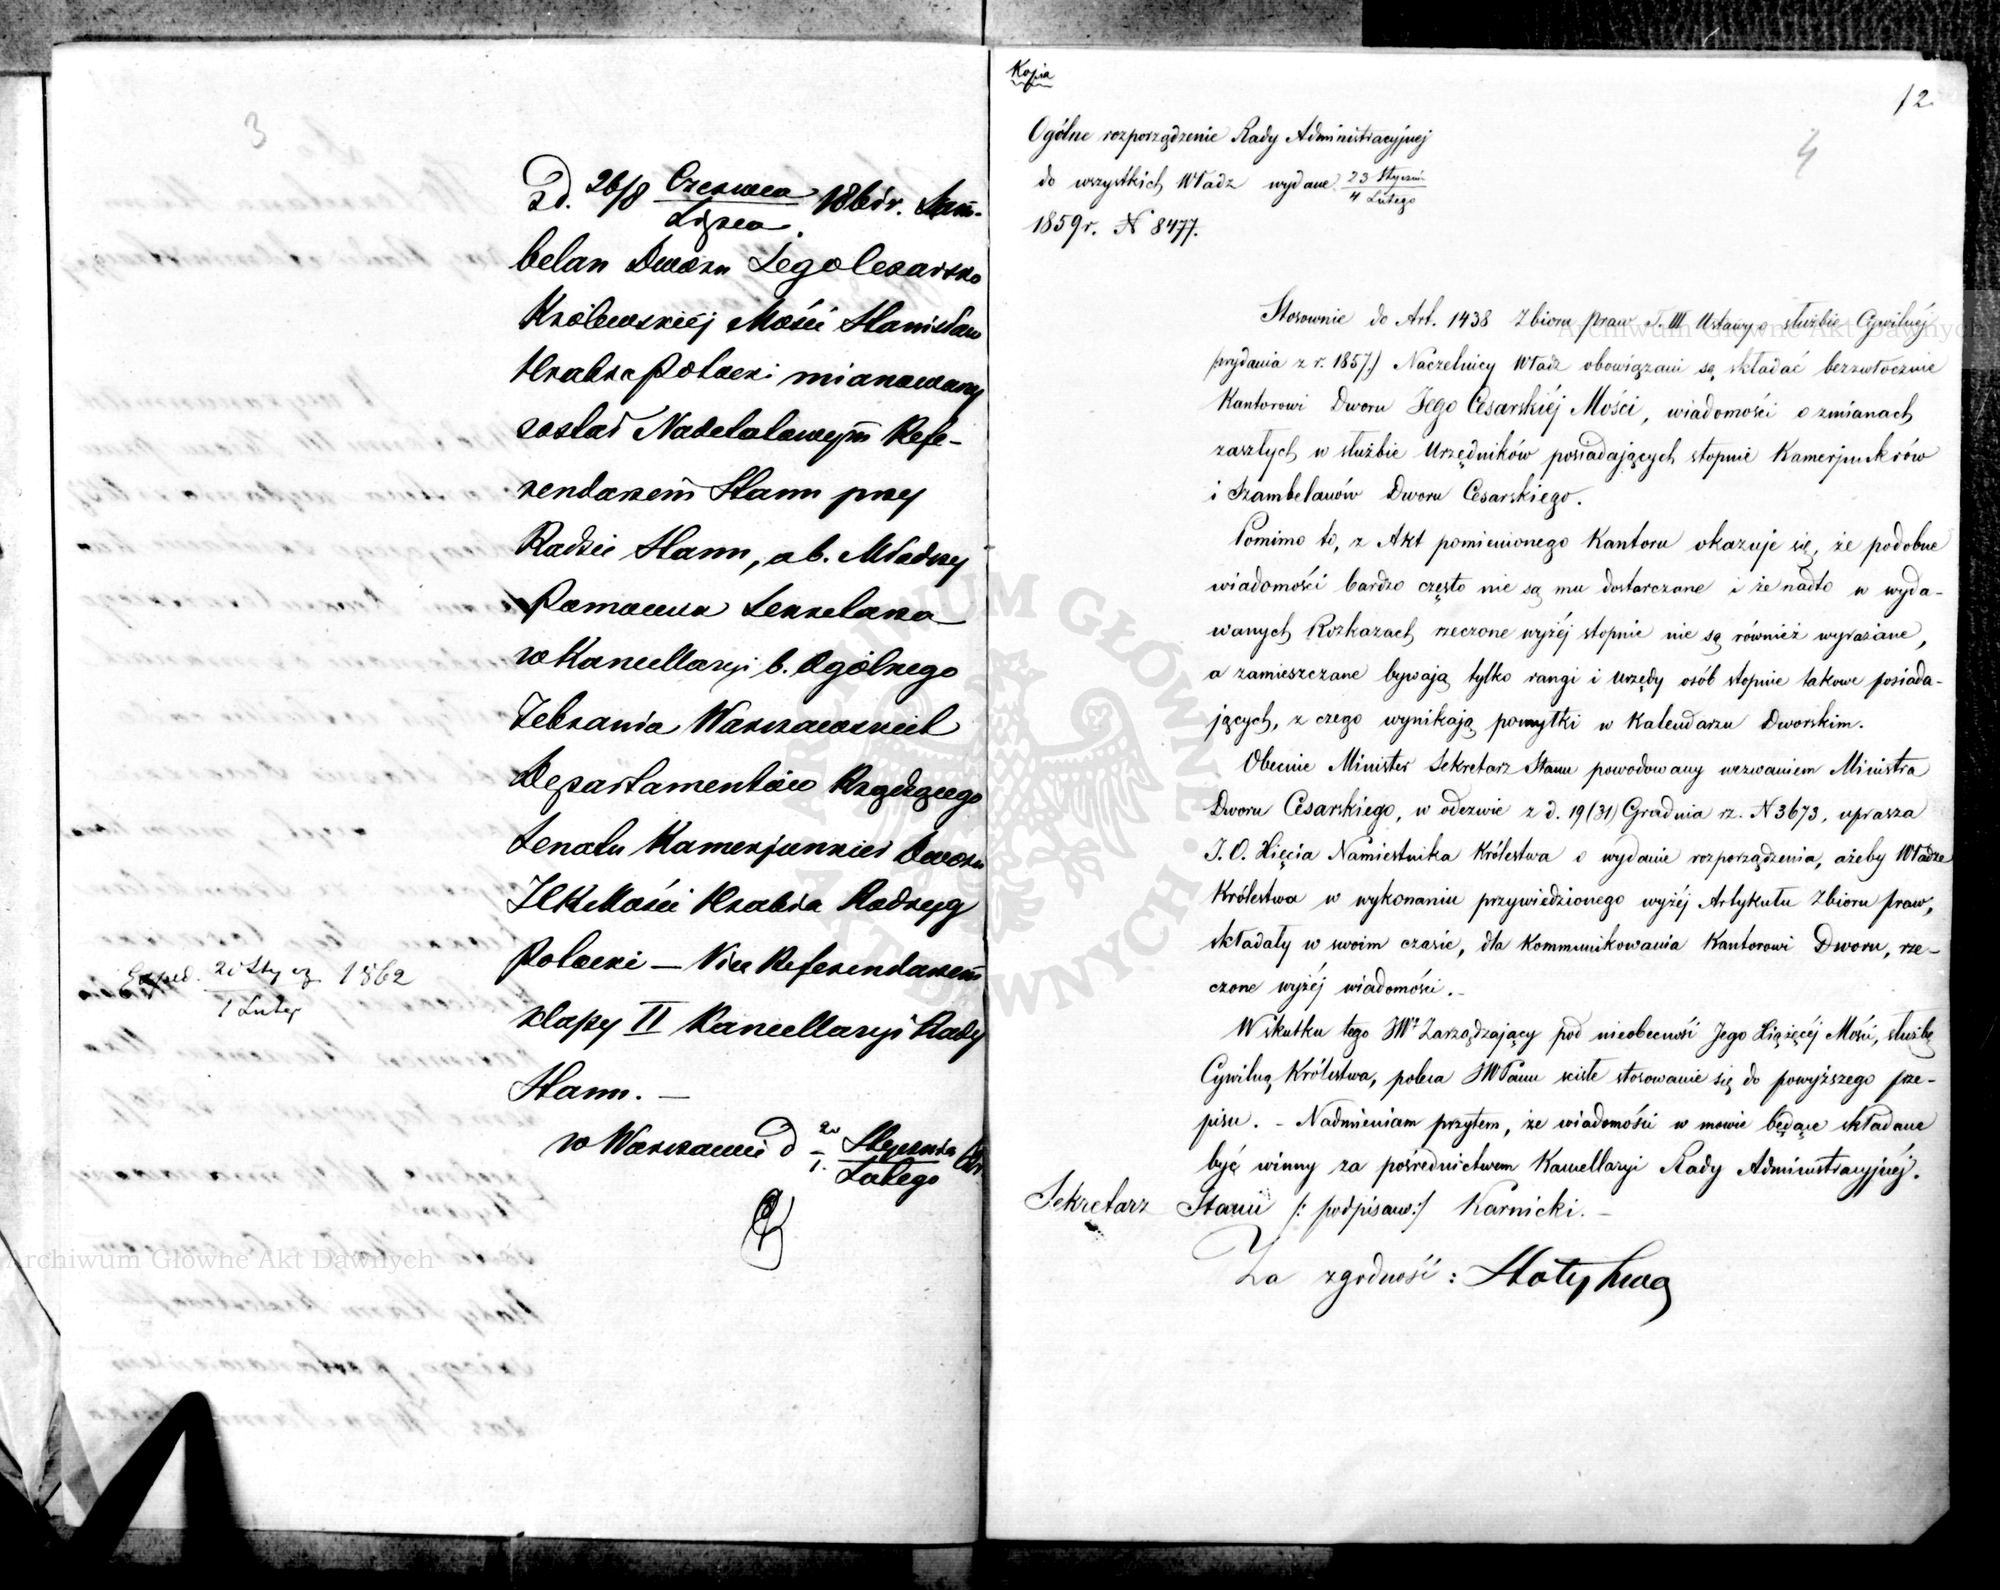 3
z d. 26/8 Czerwca/Lipca 1861r. Szam-
belan Dworu Jego Cesarsko
Królewskiéj Mości Stanisław
Hrabia Potocki mianowany
został Nadetatowym Refe-
rendarzem Stanu przy
Radzie Stanu, a b. Młodszy
Pomocnik Sekretarza
w Kancellaryi b. Ogólnego
Zebrania Warszawskich
Departamentów Rządzącego
Senatu Kamerjunkier Dworu
JCKMości Hrabia
Potocki — Vice Referendarzem
klassy II Kancellaryi Rady
Stanu. —
w Warszawie d 20 Stycznia/1 Lutego 62r.
Exped. 20 Stycz/1 Luteg 1862
Kopia
12
4
Ogólne rozporządzenie Rady Administracyjnej
do wszystkich Władz wydane 23 Styczni/4 Lutego
1859r. N 8477.
Stosownie do Art. 1438 Zbioru praw T. III Ustawy o służbie Cywilnéj
/wydania z r. 1857./ Naczelnicy Władz obowiązani są składać bezzwłocznie
Kantorowi Dworu Jego Cesarskiéj Mości, wiadomości o zmianach
zaszłych w służbie Urzędników posiadających stopnie Kamerjunkrów
i Szambelanów Dworu Cesarskiego.
Pomimo to, z Akt pomienionego Kantoru okazuje się, że podobne
wiadomości bardzo często nie są mu dostarczane i że nadto w wyda-
wanych Rozkazach rzeczone wyżéj stopnie nie są również wyrażane,
a zamieszczane bywają tylko rangi i urzędy osób stopnie takowe posiada-
jących, z czego wynikają pomyłki w Kalendarzu Dworskim.
Obecnie Minister Sekretarz Stanu powodowany wezwaniem Ministra
Dworu Cesarskiego, w odezwie z d. 19 (31) Grudnia rz. N 3673, uprasza
J. O. Xięcia Namiestnika Królestwa o wydanie rozporządzenia, ażeby Władze
Królestwa w wykonaniu przywiedzionego wyżéj Artykułu Zbioru praw,
składały w swoim czasie, dla Kommunikowania Kantorowi Dworu, rze-
czone wyżéj wiadomości. -
W skutku tego JW. Zarządzający pod nieobecność Jego Xiążęcéj Mości, służbą
Cywilną Królestwa, poleca JWPanu ściśle stosowanie się do powyższego prze-
pisu. - Nadmieniam przytem, że wiadomości w mowie będące składane
być winny za pośrednictwem Kancellaryi Rady Administracyjnéj.
Sekretarz Stanu /: podpisano:/ Karnicki. —
Za zgodność:
Archiwum Główne Akt Dawnych
Archiwum Główne Akt Dawnych
ARCHIWUM GŁÓWNE AKT DAWNYCH